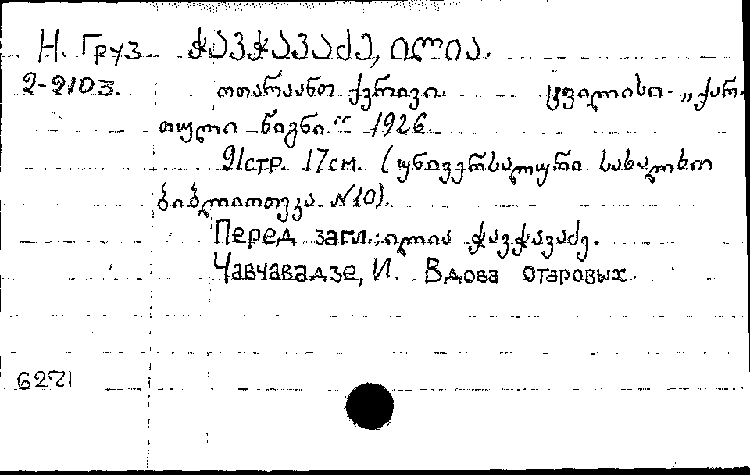 Н. Груз ჭავჭავაძე, ილია.
2-2103. ოთარაანთ ქვრივი. ტფილისი. „ქარ-
თული წიგნი“ 1926
91стр. 17см. (უნივერსალური სახალხო
ბიბლიოთეკა №10).
Перед загл.: ილია ჭავჭავაძე.
Чавчавадзе, И. Вдова Отаровых.